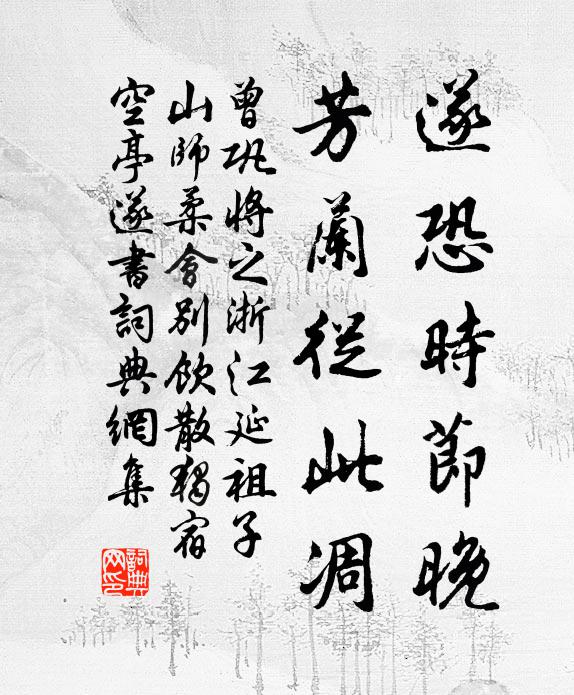 遂恐時節晚
芳蘭從此凋
曾巩將之浙江延祖子
山師柔會別飲散獨宿
空亭遂書詞典網集
詞典網印